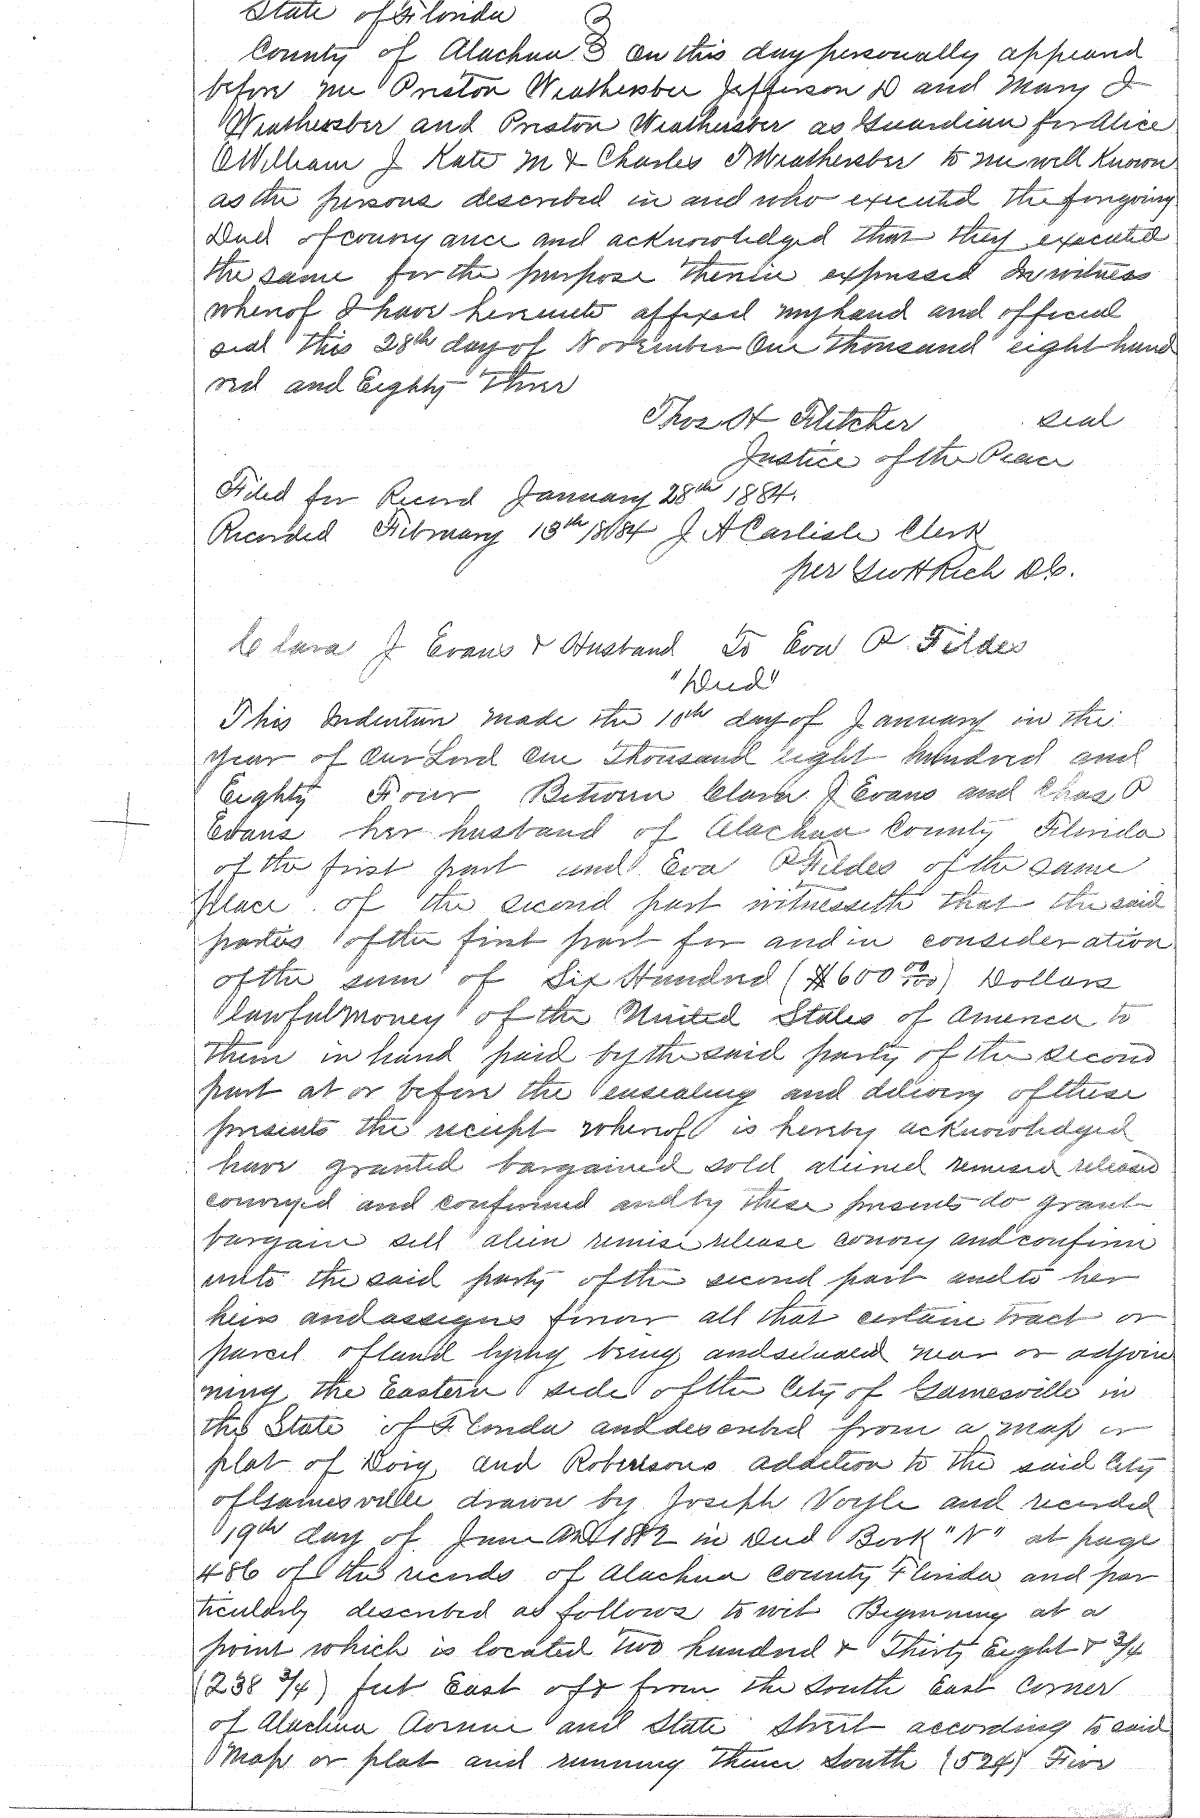 State of Florida }
County of Alachua } On this day personally appeared
before me Preston Weathersbee Jefferson D and Mary J
Weathersber and Preston Weathersber as Guardian for Alice
C William J Kate M & Charles T Weathersber to me well known
as the persons described in and who executed the foregoing
Deed of conveyance and acknowledged that they executed
the same for the purpose therein expressed In witness
whereof I have hereunto affixed my hand and official
seal this 28th day of November One thousand eight hund
red and Eighty Three
Thos H Fletcher seal
Justice of the Peace
Filed for Record January 28th 1884.
Recorded February 13th 1884 J A Carlisle Clerk
per Geo H Rich D C.
Clara J Evans & Husband To Eva P. Fildes
"Deed"
This Indenture made the 10th day of January in the
year of Our Lord One thousand eight hundred and
Eighty Four Between Clara J Evans and Chas P
Evans her husband of Alachua County Florida
of the first part and Eva P Fildes of the same
place of the second part witnesseth that the said
parties of the first part for and in consideration
of the sum of Six Hundred ($600 00/100) Dollars
lawful money of the United States of America to
them in hand paid by the said party of the second
part at or before the ensealing and delivery of these
presents the receipt whereof is hereby acknowledged
have granted bargained sold aliened remised released
conveyed and confirmed and by these presents do grant
bargain sell alien remise release convey and confirm
unto the said party of the second part and to her
heirs and assigns forever all that certain tract or
parcel of land lying being and situated near or adjoin
ning the Eastern side of the City of Gainesville in
the State of Florida and described from a map or
plat of Doig and Robertsons addition to the said City
of Gainesville drawn by Joseph Voyle and recorded
19th day of June AD 1882 in Deed Book "N" at page
486 of the records of Alachua County Florida and par
ticularly described as follows to wit Beginning at a
point which is located two hundred & Thirty Eight & 3/4
(238 3/4) feet East of & from the South East Corner
of Alachua Avenue and State Street according to said
Map or plat and running thence South (524) Five